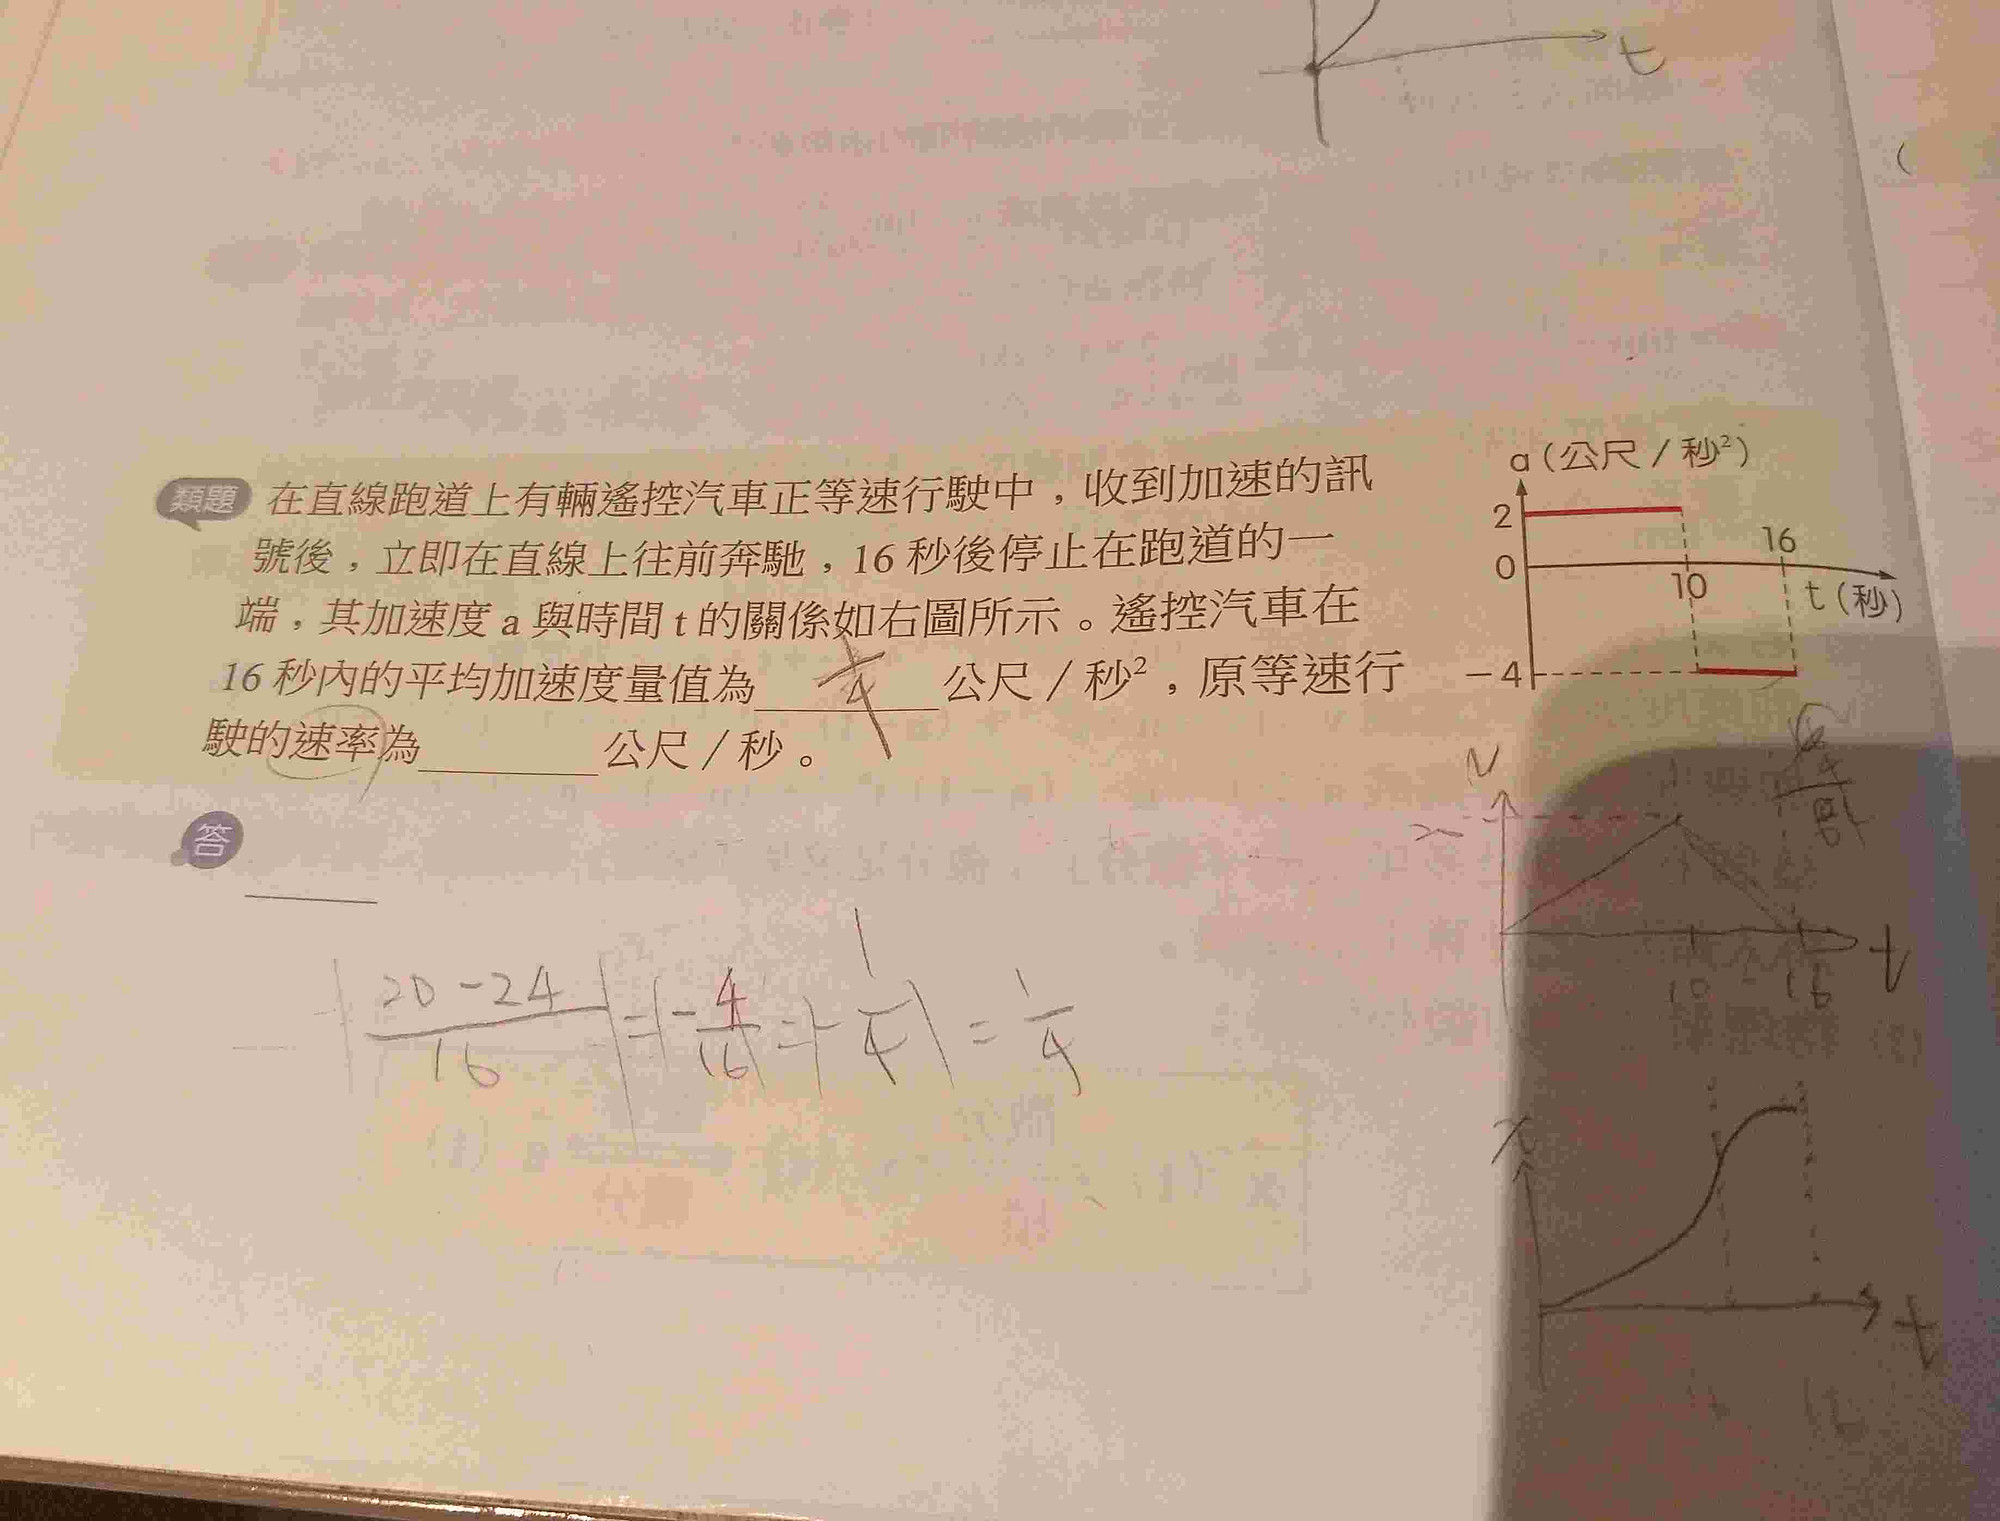 t
類題 在直線跑道上有輛遙控汽車正等速行駛中，收到加速的訊
號後，立即在直線上往前奔馳，16 秒後停止在跑道的一
端，其加速度 a 與時間 t 的關係如右圖所示。遙控汽車在
16 秒內的平均加速度量值為 1/4 公尺／秒²，原等速行
駛的速率為 公尺／秒。
a（公尺／秒²）
2
0
10
16
t（秒）
－4
答
|20-24/16| = |-4/16| = |-1/4| = 1/4
V
10
16
t
x
t